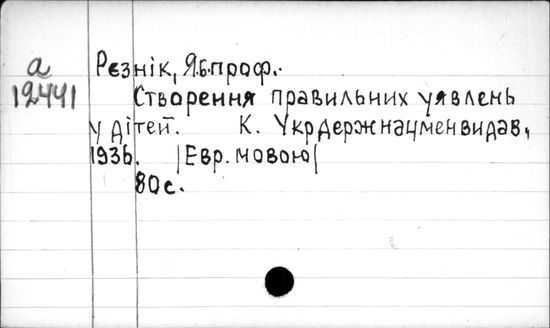 а Рєзнік, Я.Б.проф.-
12441 Створення правильних уявлень
у дітей. К. Укрдержнацменвидав,
1936. |Евр. мовою|
80с.